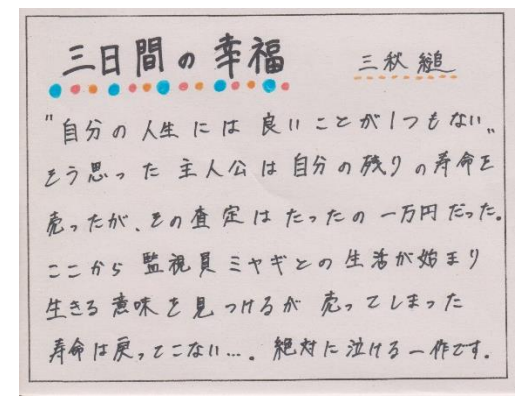 三日間の幸福 三秋縋
"自分の人生には良いことが1つもない"
そう思った主人公は自分の残りの寿命を
売ったが、その査定はたったの一万円だった。
ここから監視員ミヤギとの生活が始まり
生きる意味を見つけるが売ってしまった
寿命は戻ってこない…。絶対に泣ける一作です。